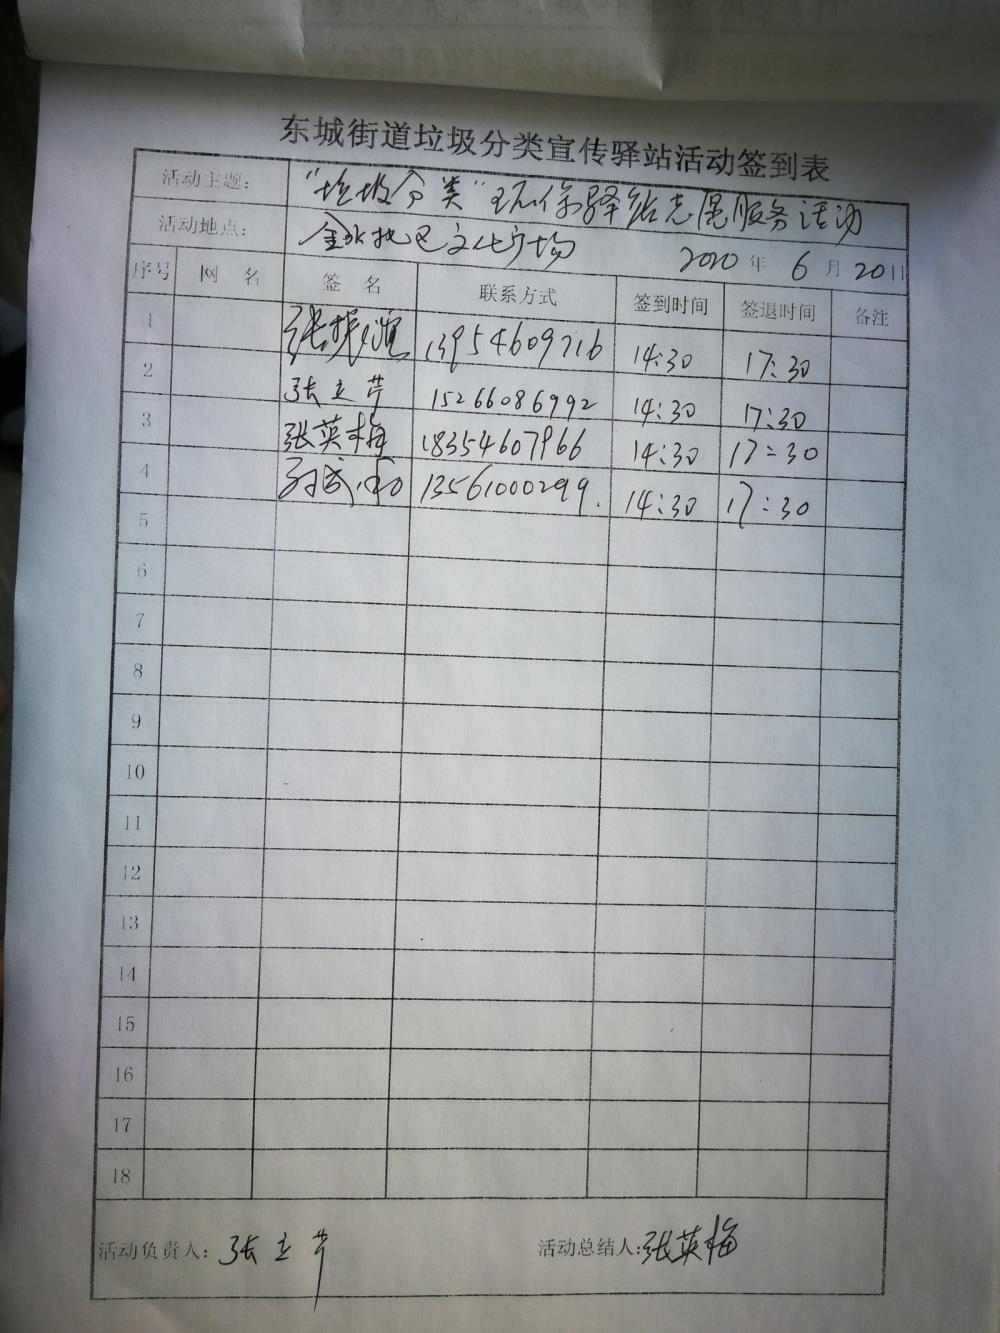 东城街道垃圾分类宣传驿站活动签到表
活动主题: "垃圾分类"环保驿站志愿服务活动
活动地点: 金水社区文化广场 2020年 6月 20日
序号 网名 签名 联系方式 签到时间 签退时间 备注
1 张振 13954609716 14:30 17:30
2 张立芹 15266086992 14:30 17:30
3 张英梅 18354607966 14:30 17:30
4 13561000299. 14:30 17:30
5
6
7
8
9
10
11
12
13
14
15
16
17
18
活动负责人: 张立芹 活动总结人: 张英梅